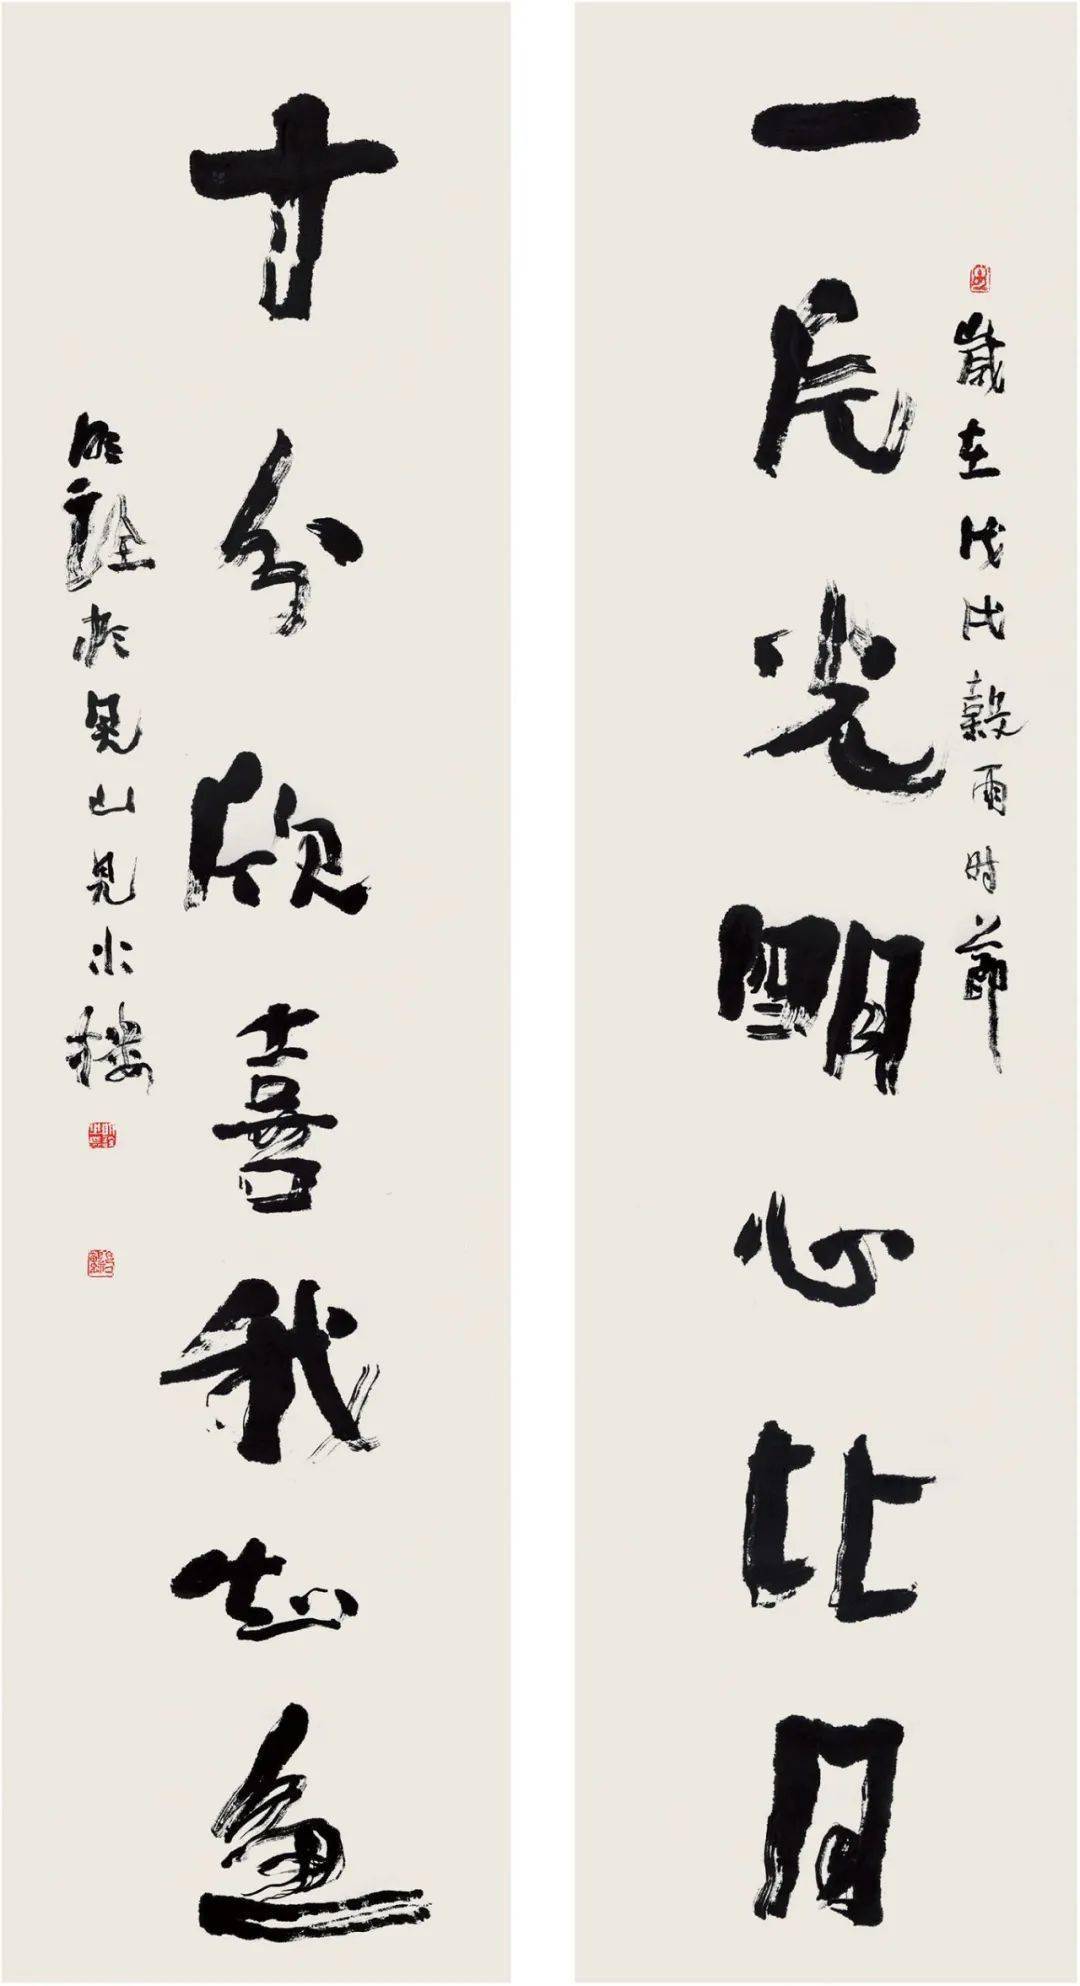 一片光明心比月
歲在戊戌穀雨時節
十分欣喜我知魚
明詮於見山見水樓